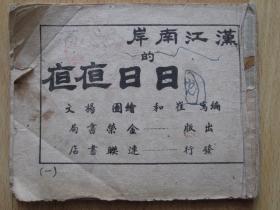 漢江南岸
的
日日亱亱
編寫崔和繪圖楊文
出版——金榮書局
發行——連聯書店
(一)